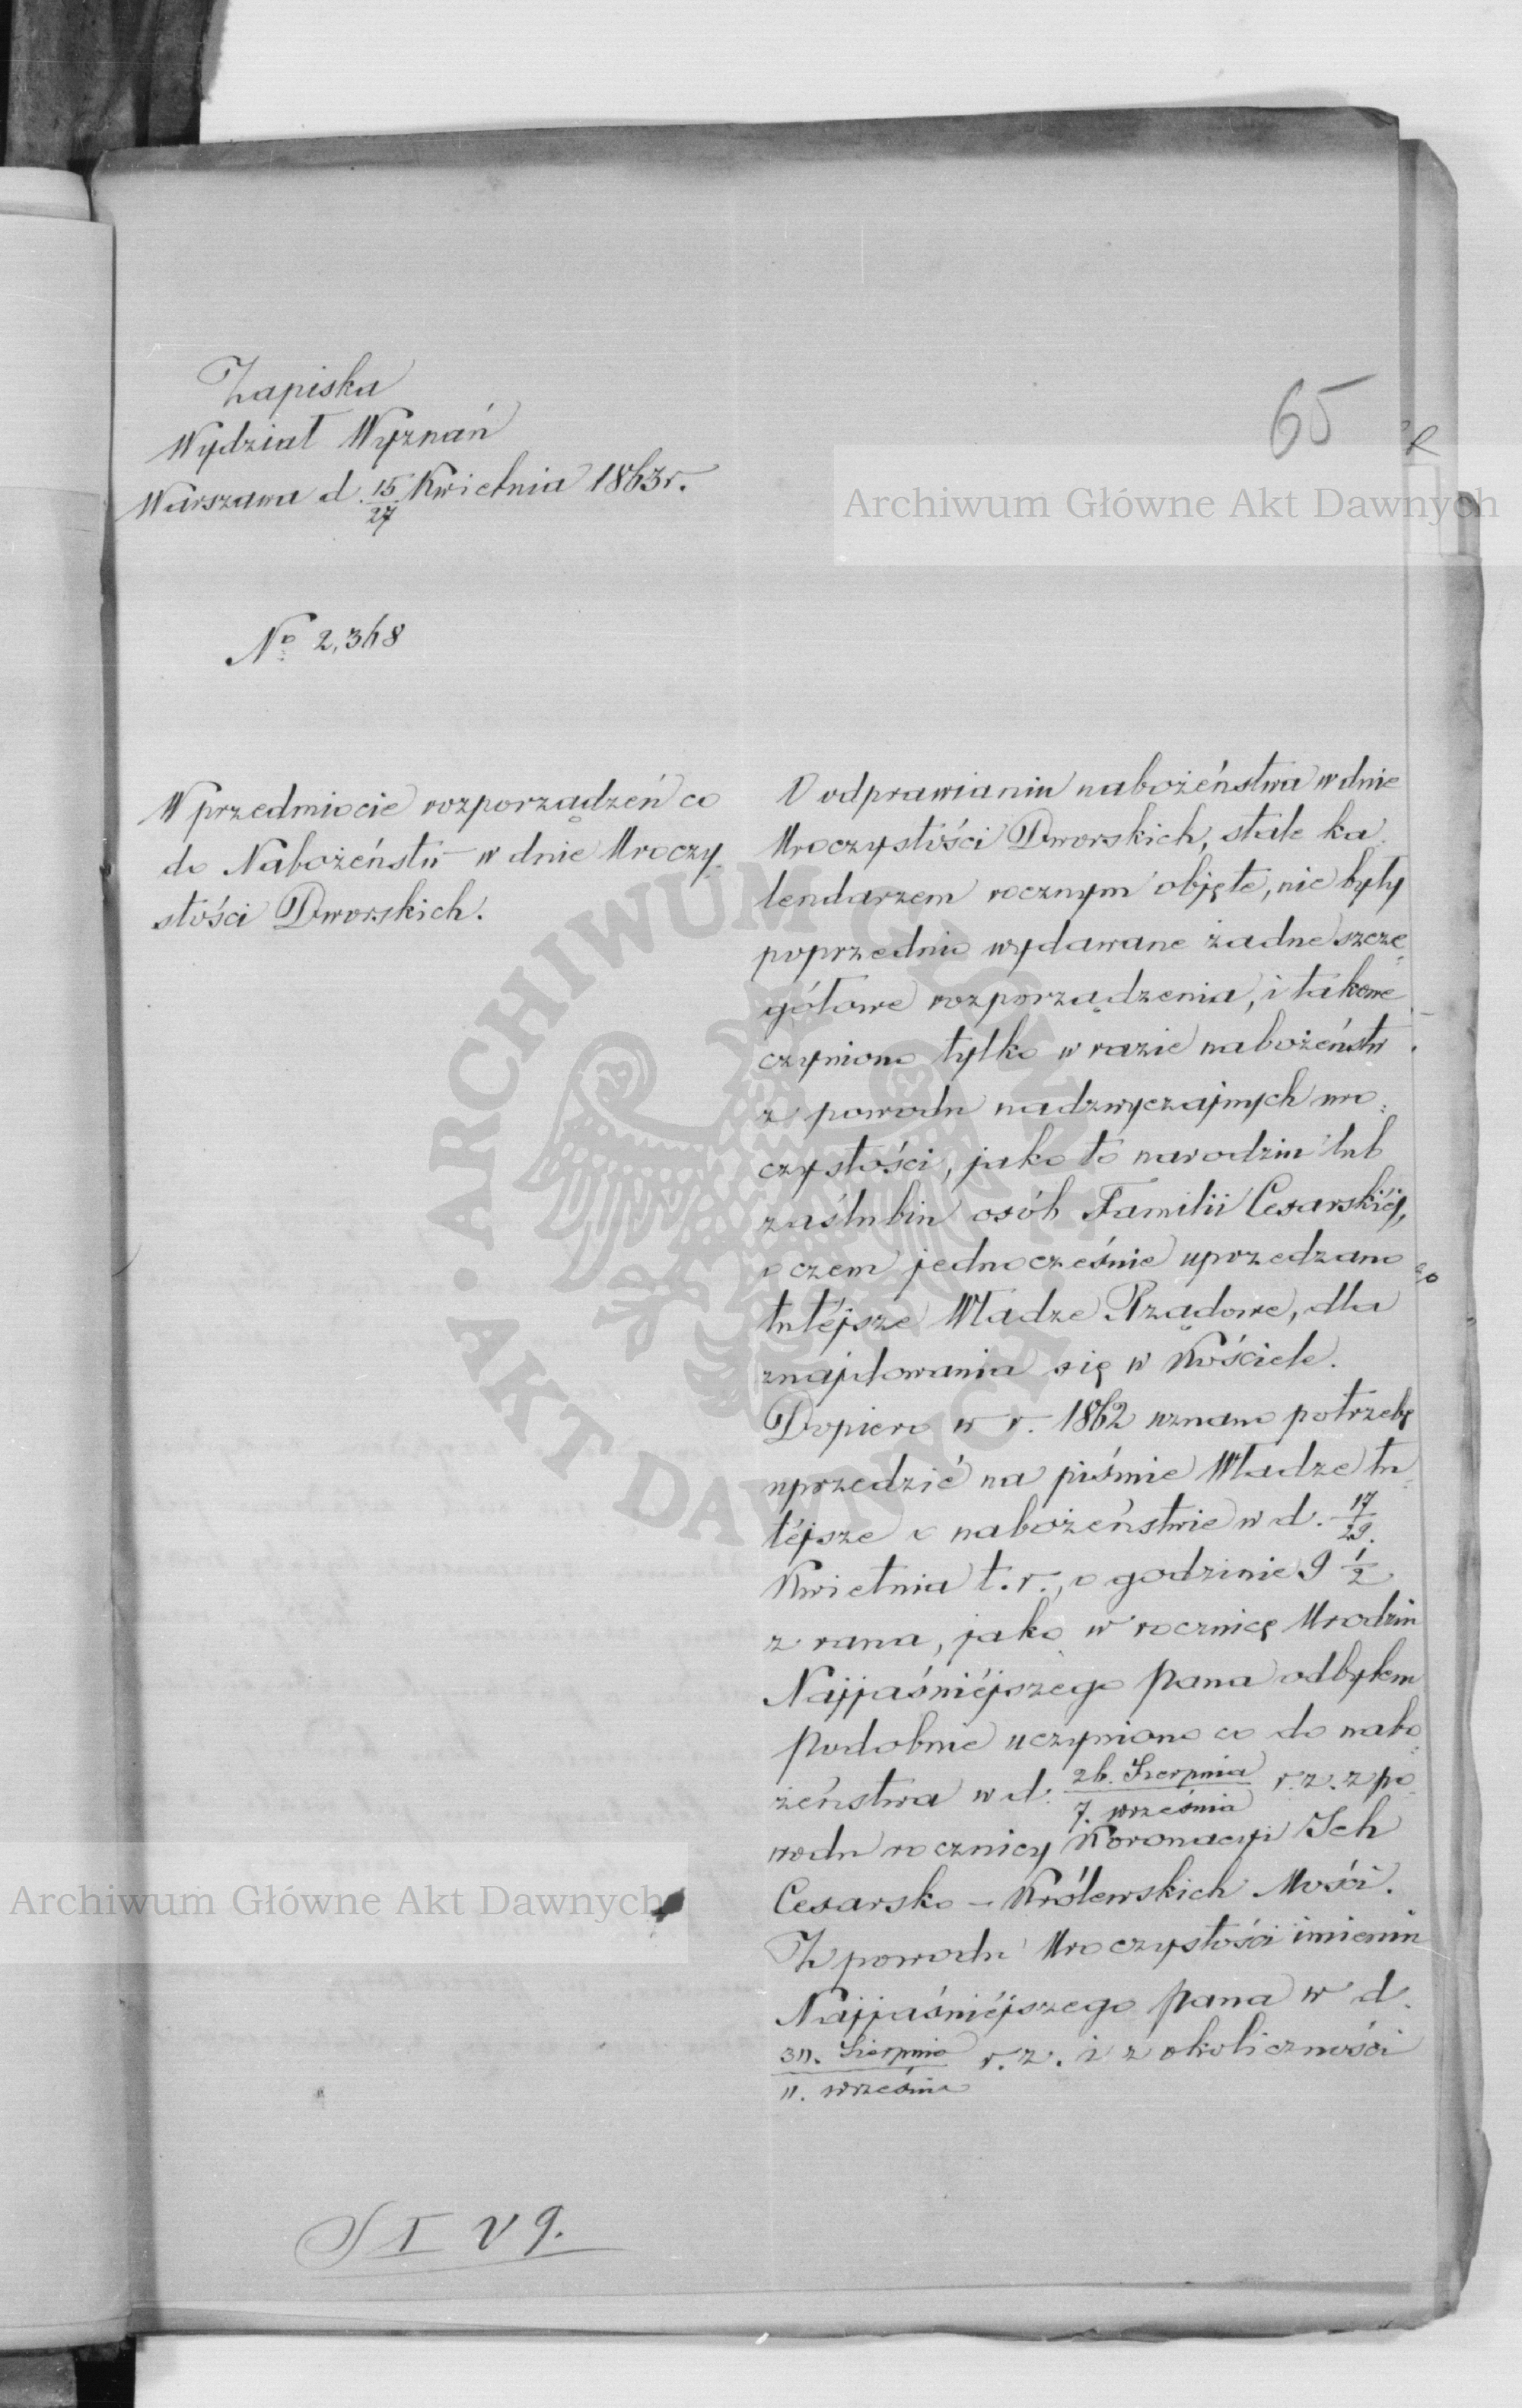 Zapiska
Wydział Wyznań
Warszawa d. 15/27 Kwietnia 1863 r.
65
Archiwum Główne Akt Dawnych
Nº 2,368
W przedmiocie rozporządzeń co
do Nabożeństw w dnie Uroczy
stości Dworskich.
O odprawianiu nabożeństwa w dnie
Uroczystości Dworskich, stale ka
lendarzem rocznym objęte, nie były
poprzednio wydawane żadne szcze
gółowe rozporządzenia, i takowe
czyniono tylko w razie nabożeństw
z powodu nadzwyczajnych uro=
czystości, jako to narodzin lub
zaślubin osób Familii Cesarskiéj,
o czem jednocześnie uprzedzano
tutéjsze Władze Rządowe, dla
znajdowania się w Kościele.
Dopiero w r. 1862 uznano potrzebę
uprzedzić na piśmie Władze tu
téjsze o nabożeństwie w d. 17/29.
Kwietnia t. r., o godzinie 9 1/2
z rana, jako w rocznicę Urodzin
Najjaśniéjszego Pana odbyłem
Podobnie uczyniono co do nabo=
żeństwa w d. 26. Sierpnia/7. września r. z. z po
wodu rocznicy Koronacyi Ich
Cesarsko-Królewskich Mości.
Z powodu Uroczystości imienin
Najjaśniéjszego Pana w d.
30. Sierpnia/11. września r. z. i z okoliczności
Archiwum Główne Akt Dawnych
ARCHIWUM GŁÓWNE AKT DAWNYCH
S I V 9.